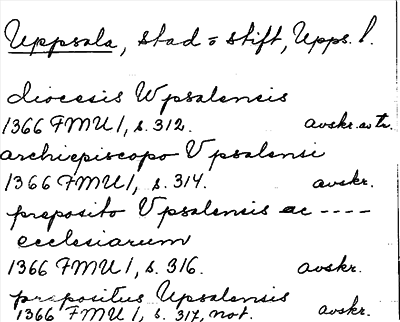 Uppsala, stad o stift, Upps. l.
diocesis Wpsalensis
1366 FMU 1, s. 312. avskr.
archiepiscopo Vpsalensi
1366 FMU 1, s. 314. avskr.
preposito Vpsalensis ac ----
ecclesiarum
1366 FMU 1, s. 316. avskr.
prepositus Upsalensis
1366 FMU 1, s. 317, not. avskr.